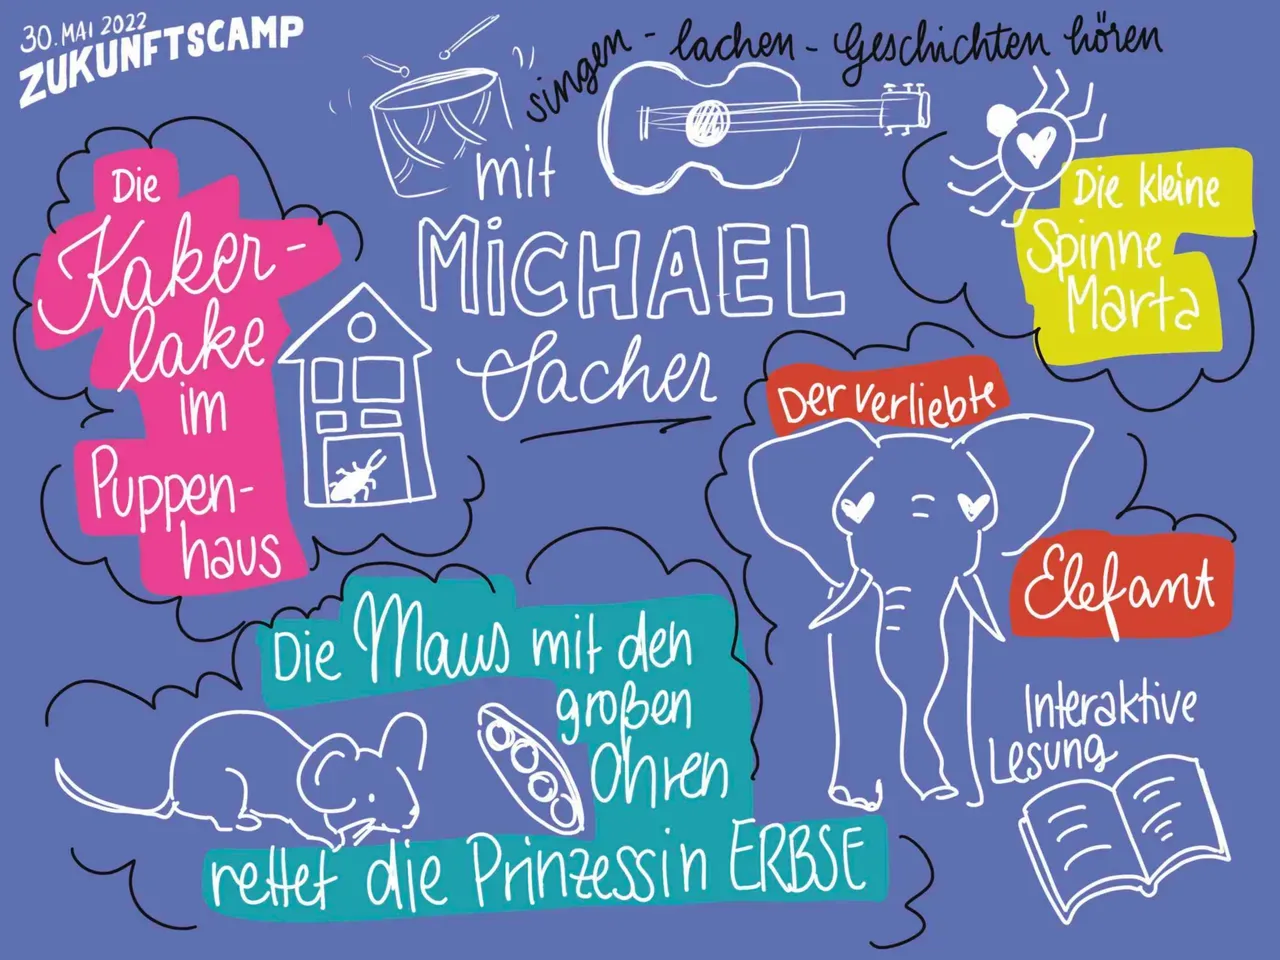 30. MAI 2022
ZUKUNFTSCAMP
singen - lachen - Geschichten hören
mit
MiCHAEL
Sacher
Die
Kaker-
lake
im
Puppen-
haus
Die kleine
Spinne
Marta
Der verliebte
Elefant
Die Maus mit den
großen
Ohren
rettet die Prinzessin ERBSE
Interaktive
Lesung